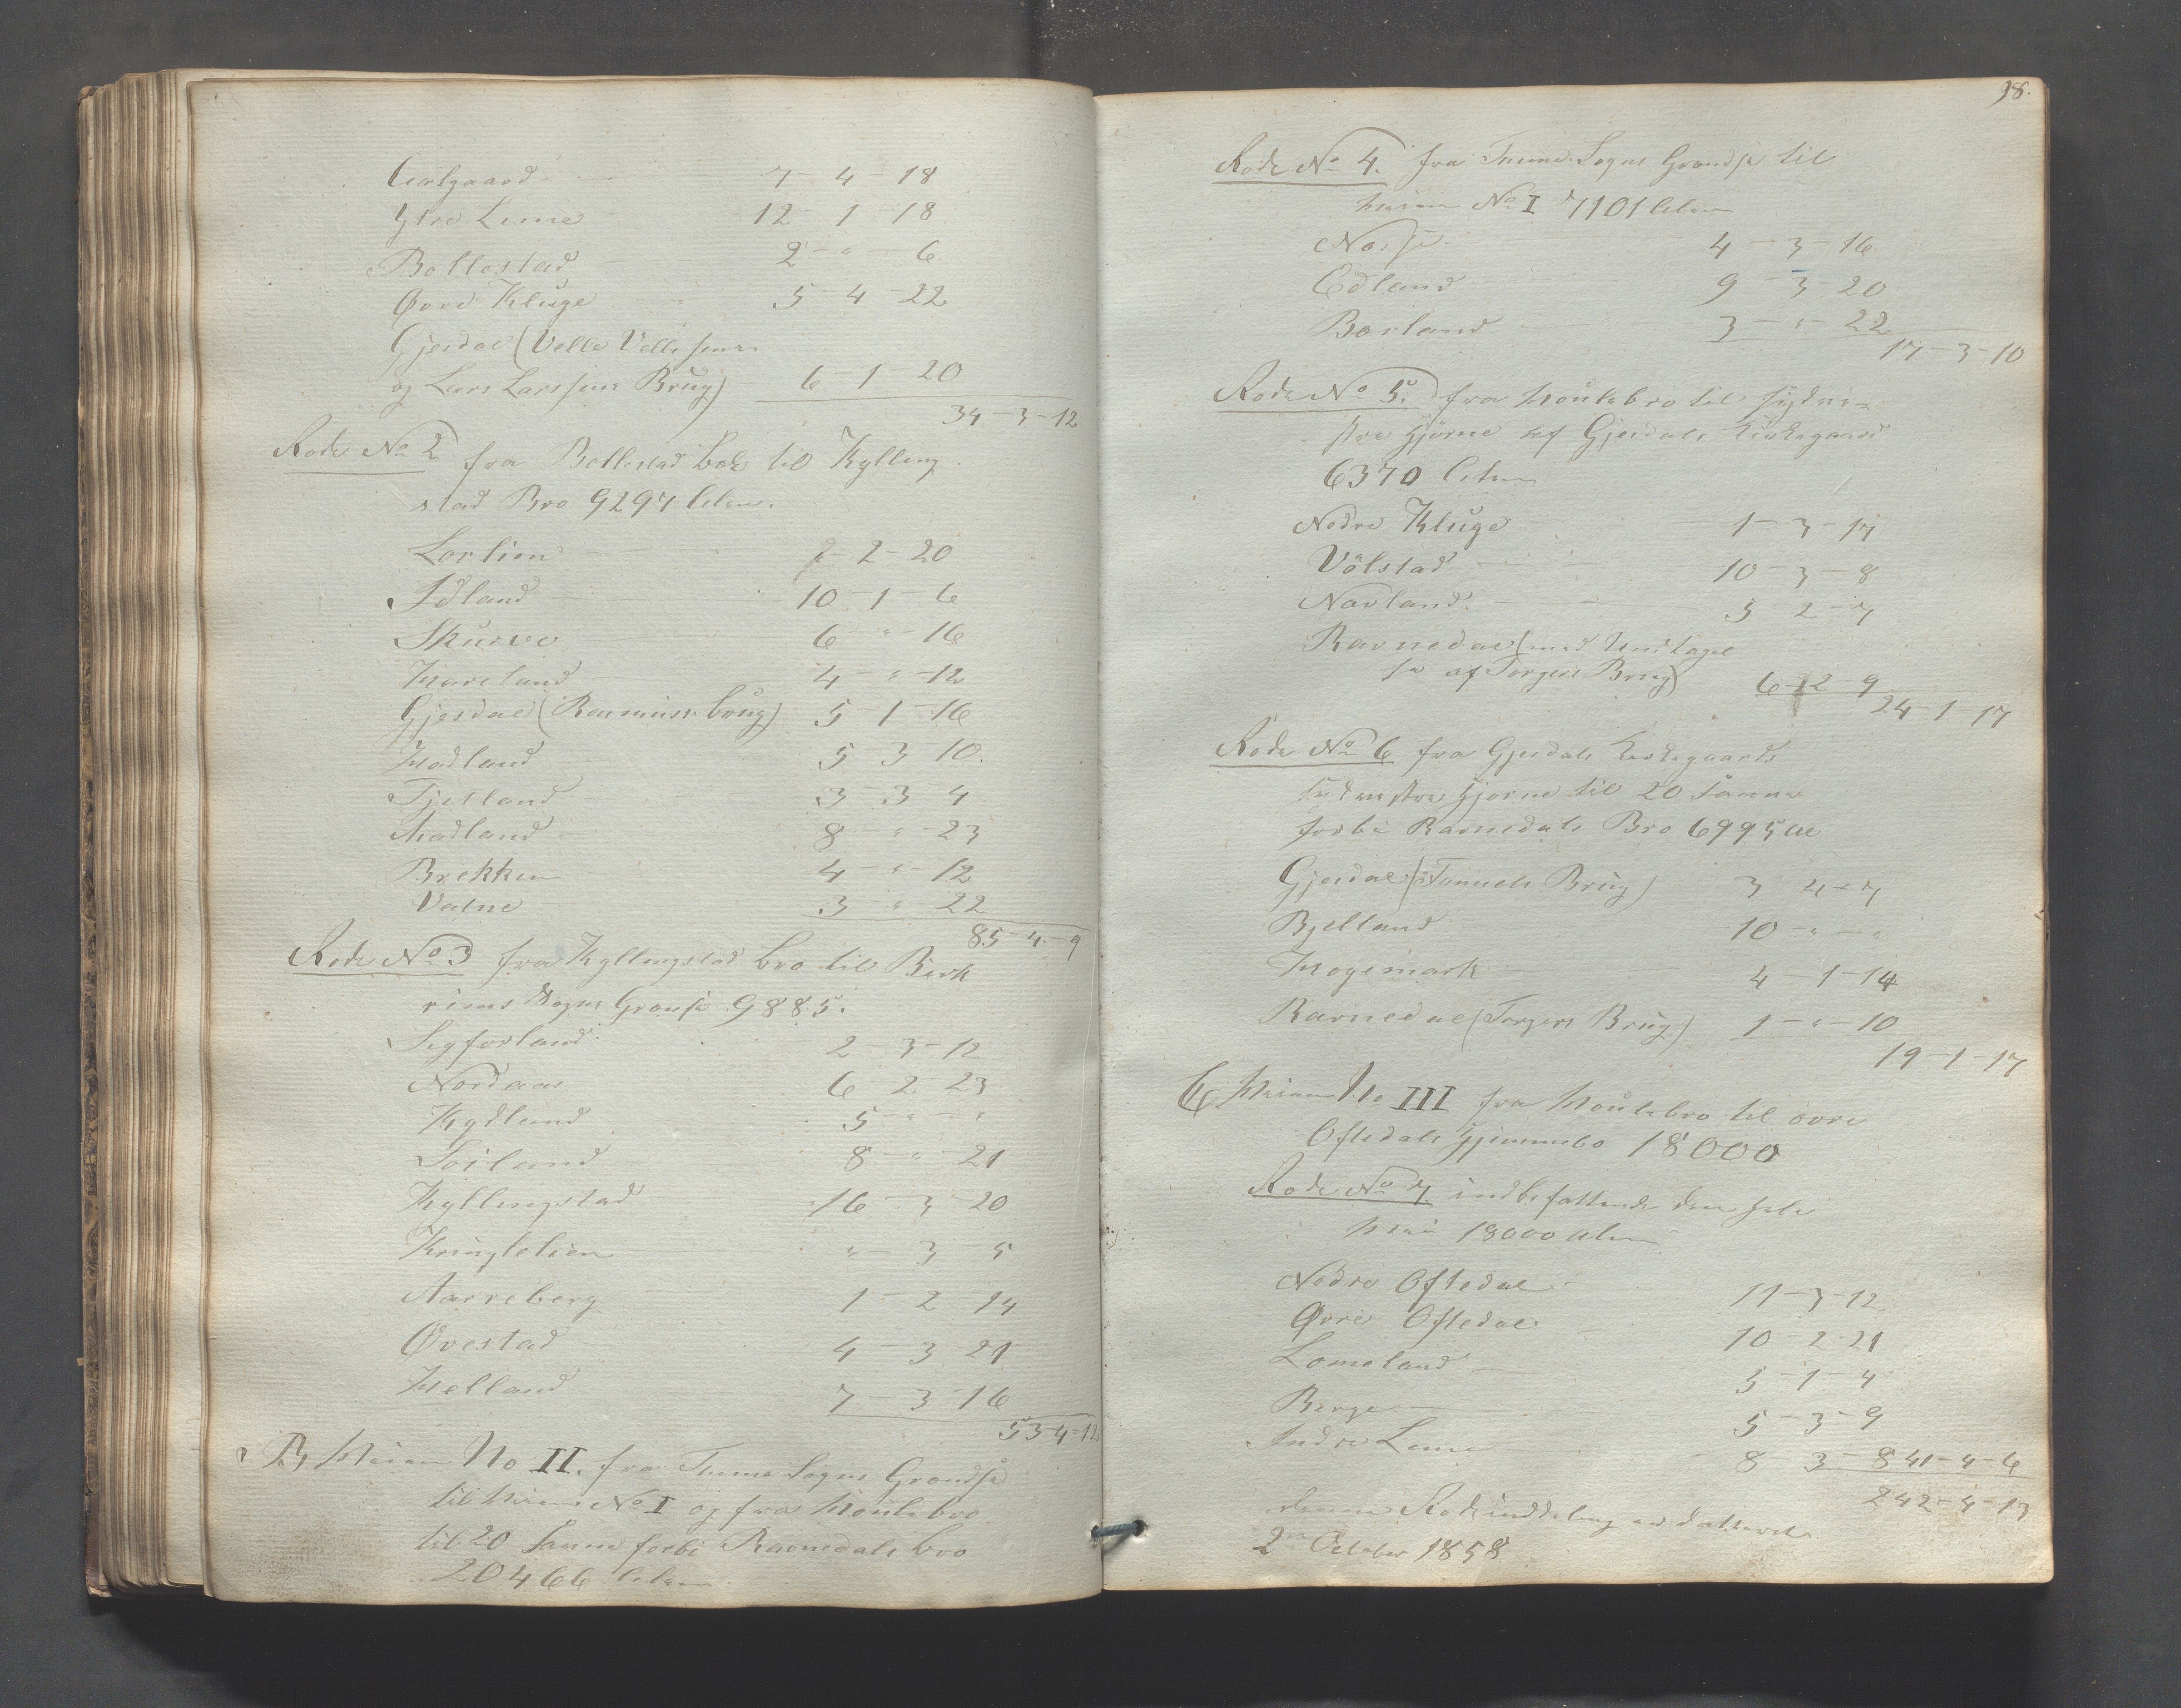 Aalgaard 7-4-18
Ytre Lime 12-1-18
Bollestad 2-"-6
Øvre Kluge 5-4-22
Gjesdal (Velle Vellesens
og Lars Larssens Brug) 6-1-20
34-3-12
Rode No 2 fra Bollestad Bæk til Kylling
stad Bro 9297 Alen.
Lortien 2-20
Idland 10-1-6
Skurve 6-"-16
Haveland 4-"-12
Gjesdal (Rasmus's brug) 5-1-16
Hadland 5-3-10.
Tjesland 3-3-4
Madland 8-"-23
Brekken 4-"-12
Valne 3-"-22
85-4-9
Rode No 3 fra Kyllingstad bro til Birk
rims Sogns Grænse 9885.
Sigforland 2-3-12
Nordaas 6-2-23
Kydland 5-"-"
Soiland 8-"-21
Kyllingstad 16-3-20
Kringlelien "-3 5
Aarreberg 1-2-14
Øvestad 4-3-21
Helland 7-3-16
53-4-12
B, Veien No II. fra Time Sogns Grændse
til Veien No I og fra Houlebro
til 20 favne forbi Ravnedals bro
20466 Alen
98.
Rode No 4. fra Time Sogns Grændse til
Veien No I 7101 Alen
Næsse 4-3-16
Edland 9-3-20
Børland 3-"-22
17-3-10
Rode No 5. fra Houlebro til sydve-
stre Hjørne af Gjesdals Kirkegaard
6370 Alen
Nedre Kluge 1-3-17
Völstad 10-3-8
Navland. 5-2-7
Ravnedal (med Undtagel
se af Torgers Brug) 6-2-9
24-1-17
Rode No 6 fra Gjesdals Kirkegaards
sydvestre Hjørne til 20 favne
forbi Ravnedals Bro 6995 Al
Gjesdal (Tønnels Brug) 3-4-7
Bjelland 10-"-"
Hogemark 4-1-14
Ravnedal (Torgers Brug) 1-"-10
19-1-17
C, Veien No III fra Houlebro til øvre
Oftedals Hjemmebø 18000
Rode No 7 indbefattende den hele
Vei 18000 Alen
Nedre Oftedal 11-3-12
Øvre Oftedal 10-2-21
Lomeland 5-1-4
Berge 5-3-9
Indre Lime 8-3-8 41-4-6
242-4-13
Denne Rodeinddeling er dateret
2 October 1858